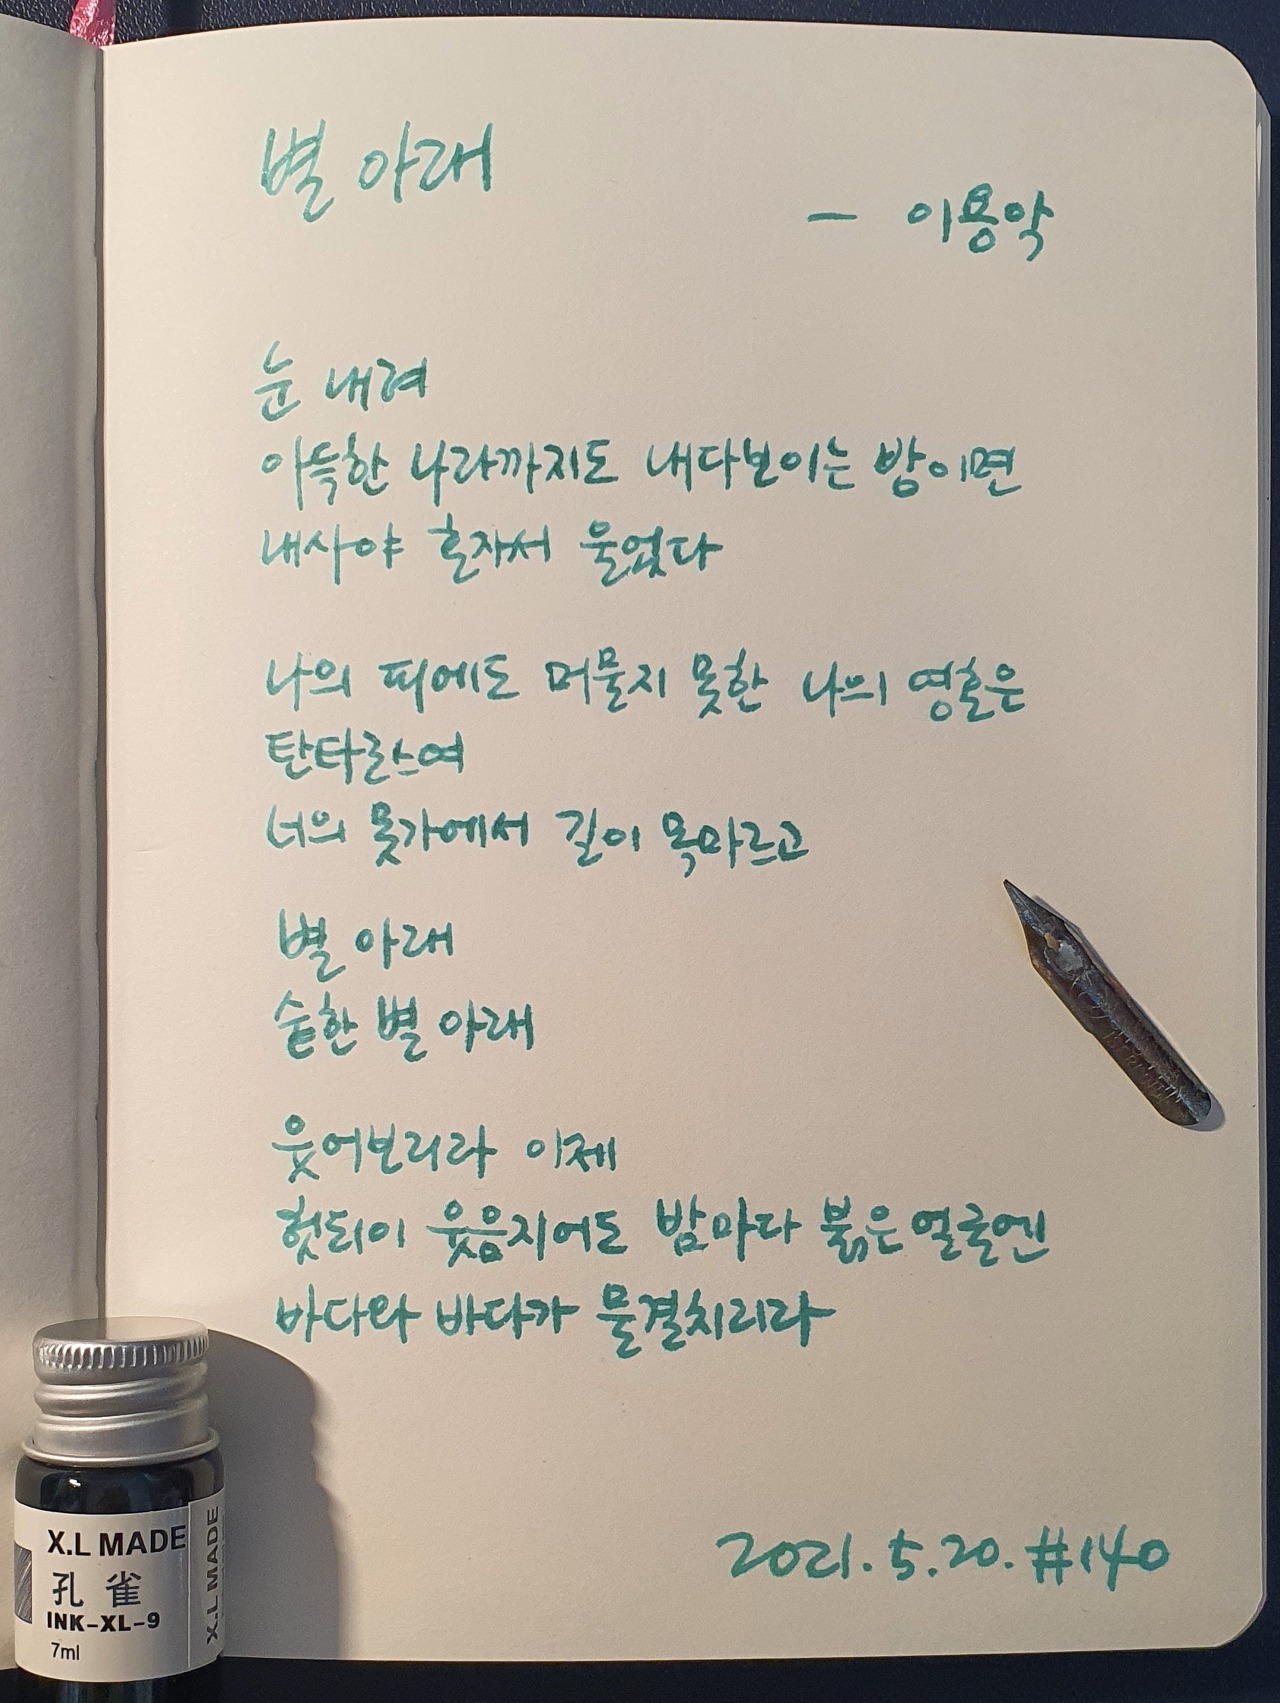 별 아래
- 이용악
눈 내려
아득한 나라까지도 내다보이는 밤이면
내사야 혼자서 울었다
나의 피에도 머물지 못한 나의 영혼은
탄타로스여
너의 못가에서 길이 목마르고
별 아래
숱한 별 아래
웃어보리라 이제
헛되이 웃음지어도 밤마다 붉은 얼굴엔
바다와 바다가 물결치리라
2021.5.20. #140
X.L MADE
孔雀
INK-XL-9
7ml
X.L MADE